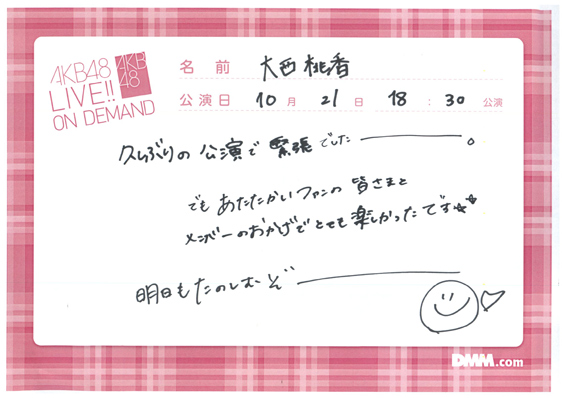 AKB48
LIVE!!
ON DEMAND
AKB
48
名前 大西桃香
公演日 10月 21日 18:30 公演
久しぶりの公演で緊張でした———。
でもあたたかいファンの皆さまと
メンバーのおかげでとても楽しかったです
明日もたのしむぞ———
DMM.com